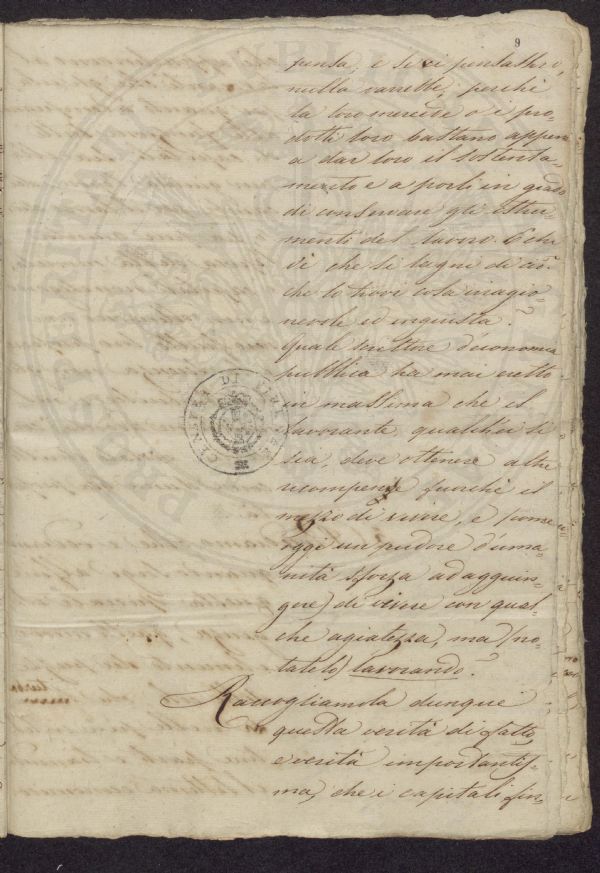 9
pensa, e se vi pensassero,
nulla varrebbe, perchè
la loro mercede o i pro=
dotti loro bastano appen
a dar loro il sostenta=
mento e a porli in grado
di conservare gli istru=
menti del lavoro. E chi
vi che si lagni di ciò.
che lo trovi cosa iragio=
nevole ed ingiusta?
Quale scrittore d'economia
pubblica ha mai eretto
in massima che il
lavorante qualsisia si
sia, deve ottenere altre
ricompense fuorchè il
mezzo di vivere, e (come
oggi un pudore d'uma=
nità sforza ad aggiun=
gere) di vivere con qual=
che agiatezza, ma (no=
tatelo) lavorando?
Raccogliamola dunque
questa verità di fatto,
e verità importantis=
ma, che i capitali fin,